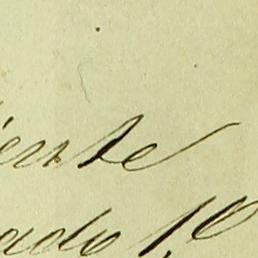 iente
ado 1º